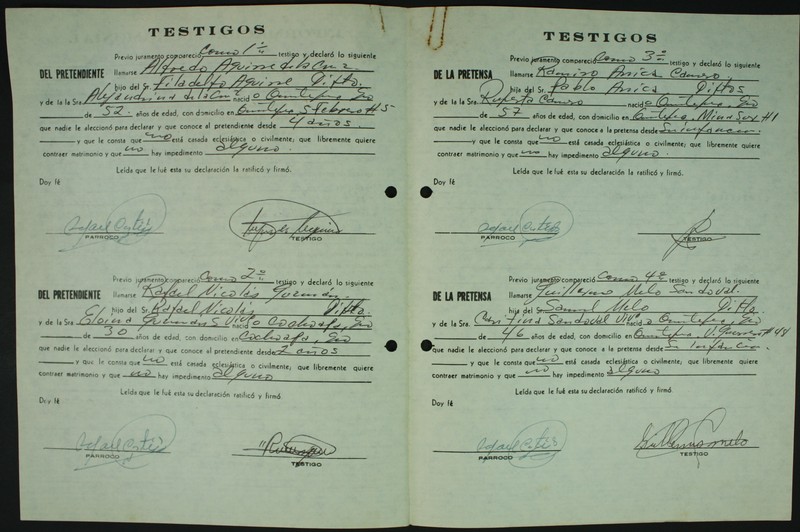 TESTIGOS
Previo juramento compareció Como 1º testigo y declaró lo siguiente
DEL PRETENDIENTE llamarse Alfredo Aguirre de la Cruz
hijo del Sr. Filadelfo Aguirre Difto.
y de la Sra. Alejandrina de la Cruz nació
de 52 años de edad, con domicilio en 5 Febrero #5
que nadie le aleccionó para declarar y que conoce al pretendiente desde 4 años.
y que le consta que no está casada eclesiástica o civilmente; que libremente quiere
contraer matrimonio y que no hay impedimento alguno.
Leída que le fué esta su declaración la ratificó y firmó.
Doy fé
Rafael Cortés
PARROCO TESTIGO
Previo juramento compareció Como 2º testigo y declaró lo siguiente
DEL PRETENDIENTE llamarse Rafael Nicolás Guzmán.
hijo del Sr. Rafael Nicolás Difto.
y de la Sra. Eloina nació Cochoapa, Gro
de 30 años de edad, con domicilio en Cochoapa, Gro
que nadie le aleccionó para declarar y que conoce al pretendiente desde 2 años
y que le consta que no está casada eclesiástica o civilmente; que libremente quiere
contraer matrimonio y que no hay impedimento alguno
Leída que le fué esta su declaración la ratificó y firmó.
Doy fé
Rafael Cortés
PARROCO TESTIGO
TESTIGOS
Previo juramento compareció Como 3º testigo y declaró lo siguiente
DE LA PRETENSA llamarse Ramiro Arica
hijo del Sr. Pablo Arica Diftos
y de la Sra. Ruperta nació
de 57 años de edad, con domicilio en Ometepec, Mina Sur #1
que nadie le aleccionó para declarar y que conoce a la pretensa desde Su infancia.
y que le consta que no está casada eclesiástica o civilmente; que libremente quiere
contraer matrimonio y que no hay impedimento alguno.
Leída que le fué esta su declaración la ratificó y firmó.
Doy fé
Rafael Cortés
PARROCO TESTIGO
Previo juramento compareció Como 4º testigo y declaró lo siguiente
DE LA PRETENSA llamarse Guillermo Melo Sandoval.
hijo del Sr. Samuel Melo Difto
y de la Sra. Cristina Sandoval nació Ometepec, Gro
de 46 años de edad, con domicilio en Ometepec V. Guerrero # 44
que nadie le aleccionó para declarar y que conoce a la pretensa desde Su infancia.
y que le consta que no está casada eclesiástica o civilmente; que libremente quiere
contraer matrimonio y que no hay impedimento alguno
Leída que le fué esta su declaración la ratificó y firmó.
Doy fé
Rafael Cortés
PARROCO TESTIGO